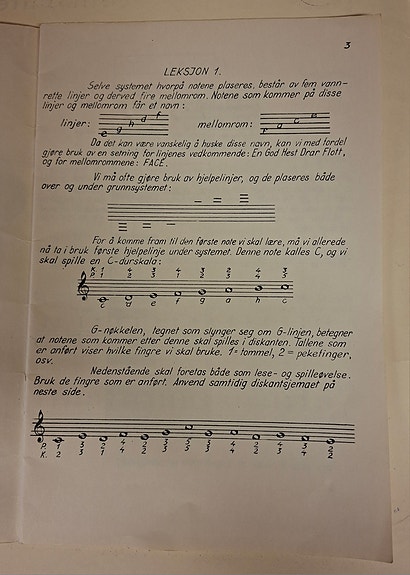 3
LEKSJON 1.
Selve systemet hvorpå notene plaseres, består av fem vann-
rette linjer og derved fire mellomrom. Notene som kommer på disse
linjer og mellomrom får et navn:
linjer: e g h d f mellomrom: f a c e
Da det kan være vanskelig å huske disse navn, kan vi med fordel
gjøre bruk av en setning for linjenes vedkommende: En God Hest Drar Flott,
og for mellomrommene: FACE.
Vi må ofte gjøre bruk av hjelpelinjer, og de plaseres både
over og under grunnsystemet:
For å komme fram til den første note vi skal lære, må vi allerede
nå ta i bruk første hjelpelinje under systemet. Denne note kalles C, og vi
skal spille en C-durskala:
c d e f g a h c
G-nøkkelen, tegnet som slynger seg om G-linjen, betegner
at notene som kommer etter denne skal spilles i diskanten. Tallene som
er anført viser hvilke fingre vi skal bruke. 1 = tommel, 2 = pekefinger,
osv.
Nedenstående skal foretas både som lese- og spilleøvelse.
Bruk de fingre som er anført. Anvend samtidig diskantsjemaet på
neste side.